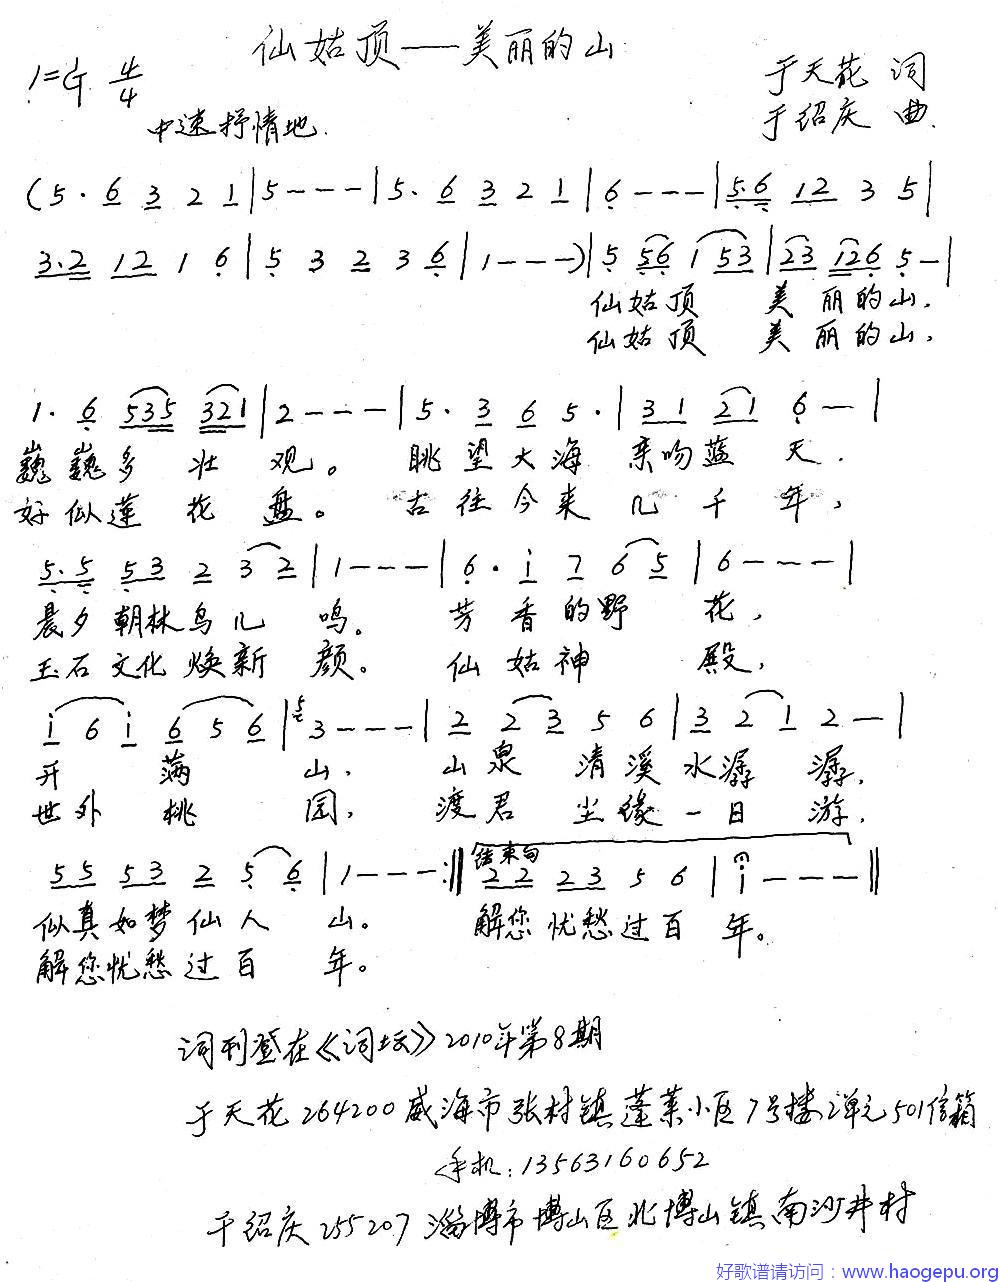 仙姑顶——美丽的山
1=G 4/4
于天花 词
中速抒情地
于绍庆 曲
(5· 6 3 2 1 | 5 - - - | 5· 6 3 2 1 | 6 - - - | 5·6 12 3 5 |
3·2 12 1 6 | 5 3 2 3 6 | 1 - - -) | 5 56 1 53 | 23 126 5 - |
仙姑顶 美丽的山，
仙姑顶 美丽的山，
1· 6 535 321 | 2 - - - | 5· 3 6 5· | 31 21 6 - |
巍巍多壮观。 眺望大海亲吻蓝天．
好似莲花盘。 古往今来几千年，
5·5 53 2 3 2 | 1 - - - | 6· i 7 6 5 | 6 - - - |
晨夕朝林鸟儿鸣。 芳香的野花，
玉石文化焕新颜。 仙姑神殿，
i 6 i 6 5 6 | 5 3 - - - | 2 2 3 5 6 | 3 2 1 2 - |
开满山． 山泉清溪水潺潺，
世外桃园， 渡君尘缘一日游，
结束句
55 53 2 5 6 | 1 - - - :‖ 22 23 5 6 | i - - - ‖
似真如梦仙人山。 解您忧愁过百年。
解您忧愁过百年。
词刊登在《词坛》2010年第8期
于天花 264200 威海市张村镇蓬莱小区7号楼2单元501信箱
手机：13563160652
于绍庆 255207 淄博市博山区北博山镇南沙井村
好歌谱请访问：www.haogepu.org